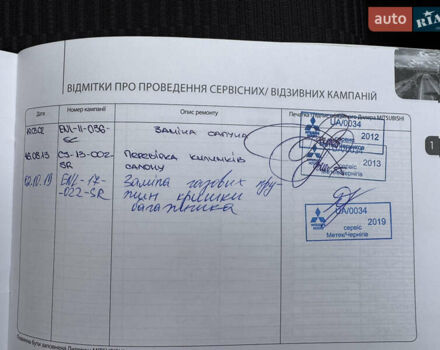 auto RIA
ВІДМІТКИ ПРО ПРОВЕДЕННЯ СЕРВІСНИХ/ ВІДЗИВНИХ КАМПАНІЙ
Дата Номер кампанії Опис ремонту Печатка Дилера MITSUBISHI
ENL-11-036-SC Заміна сапуна UA/0034 2012
16.08.13 CJ-13-002-SR Перевірка килимків салону 2013
02.10.19 ENL-17-022-SR Заміна газових пру-
жин кришки
багажника
UA/0034
сервіс 2019
Метек/Чернігів
1